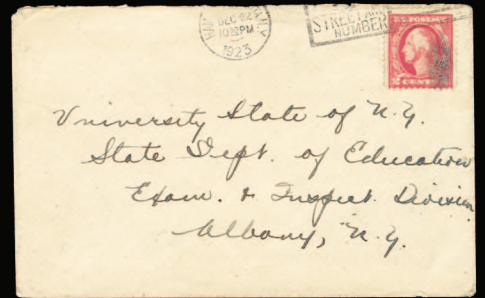 DEC 22
10 PM
1923
STREET AND
NUMBER
U.S. POSTAGE
2 CENTS 2
University State of N.Y.
State Dept. of Education
Exam. & Inspect. Division
Albany, N.Y.